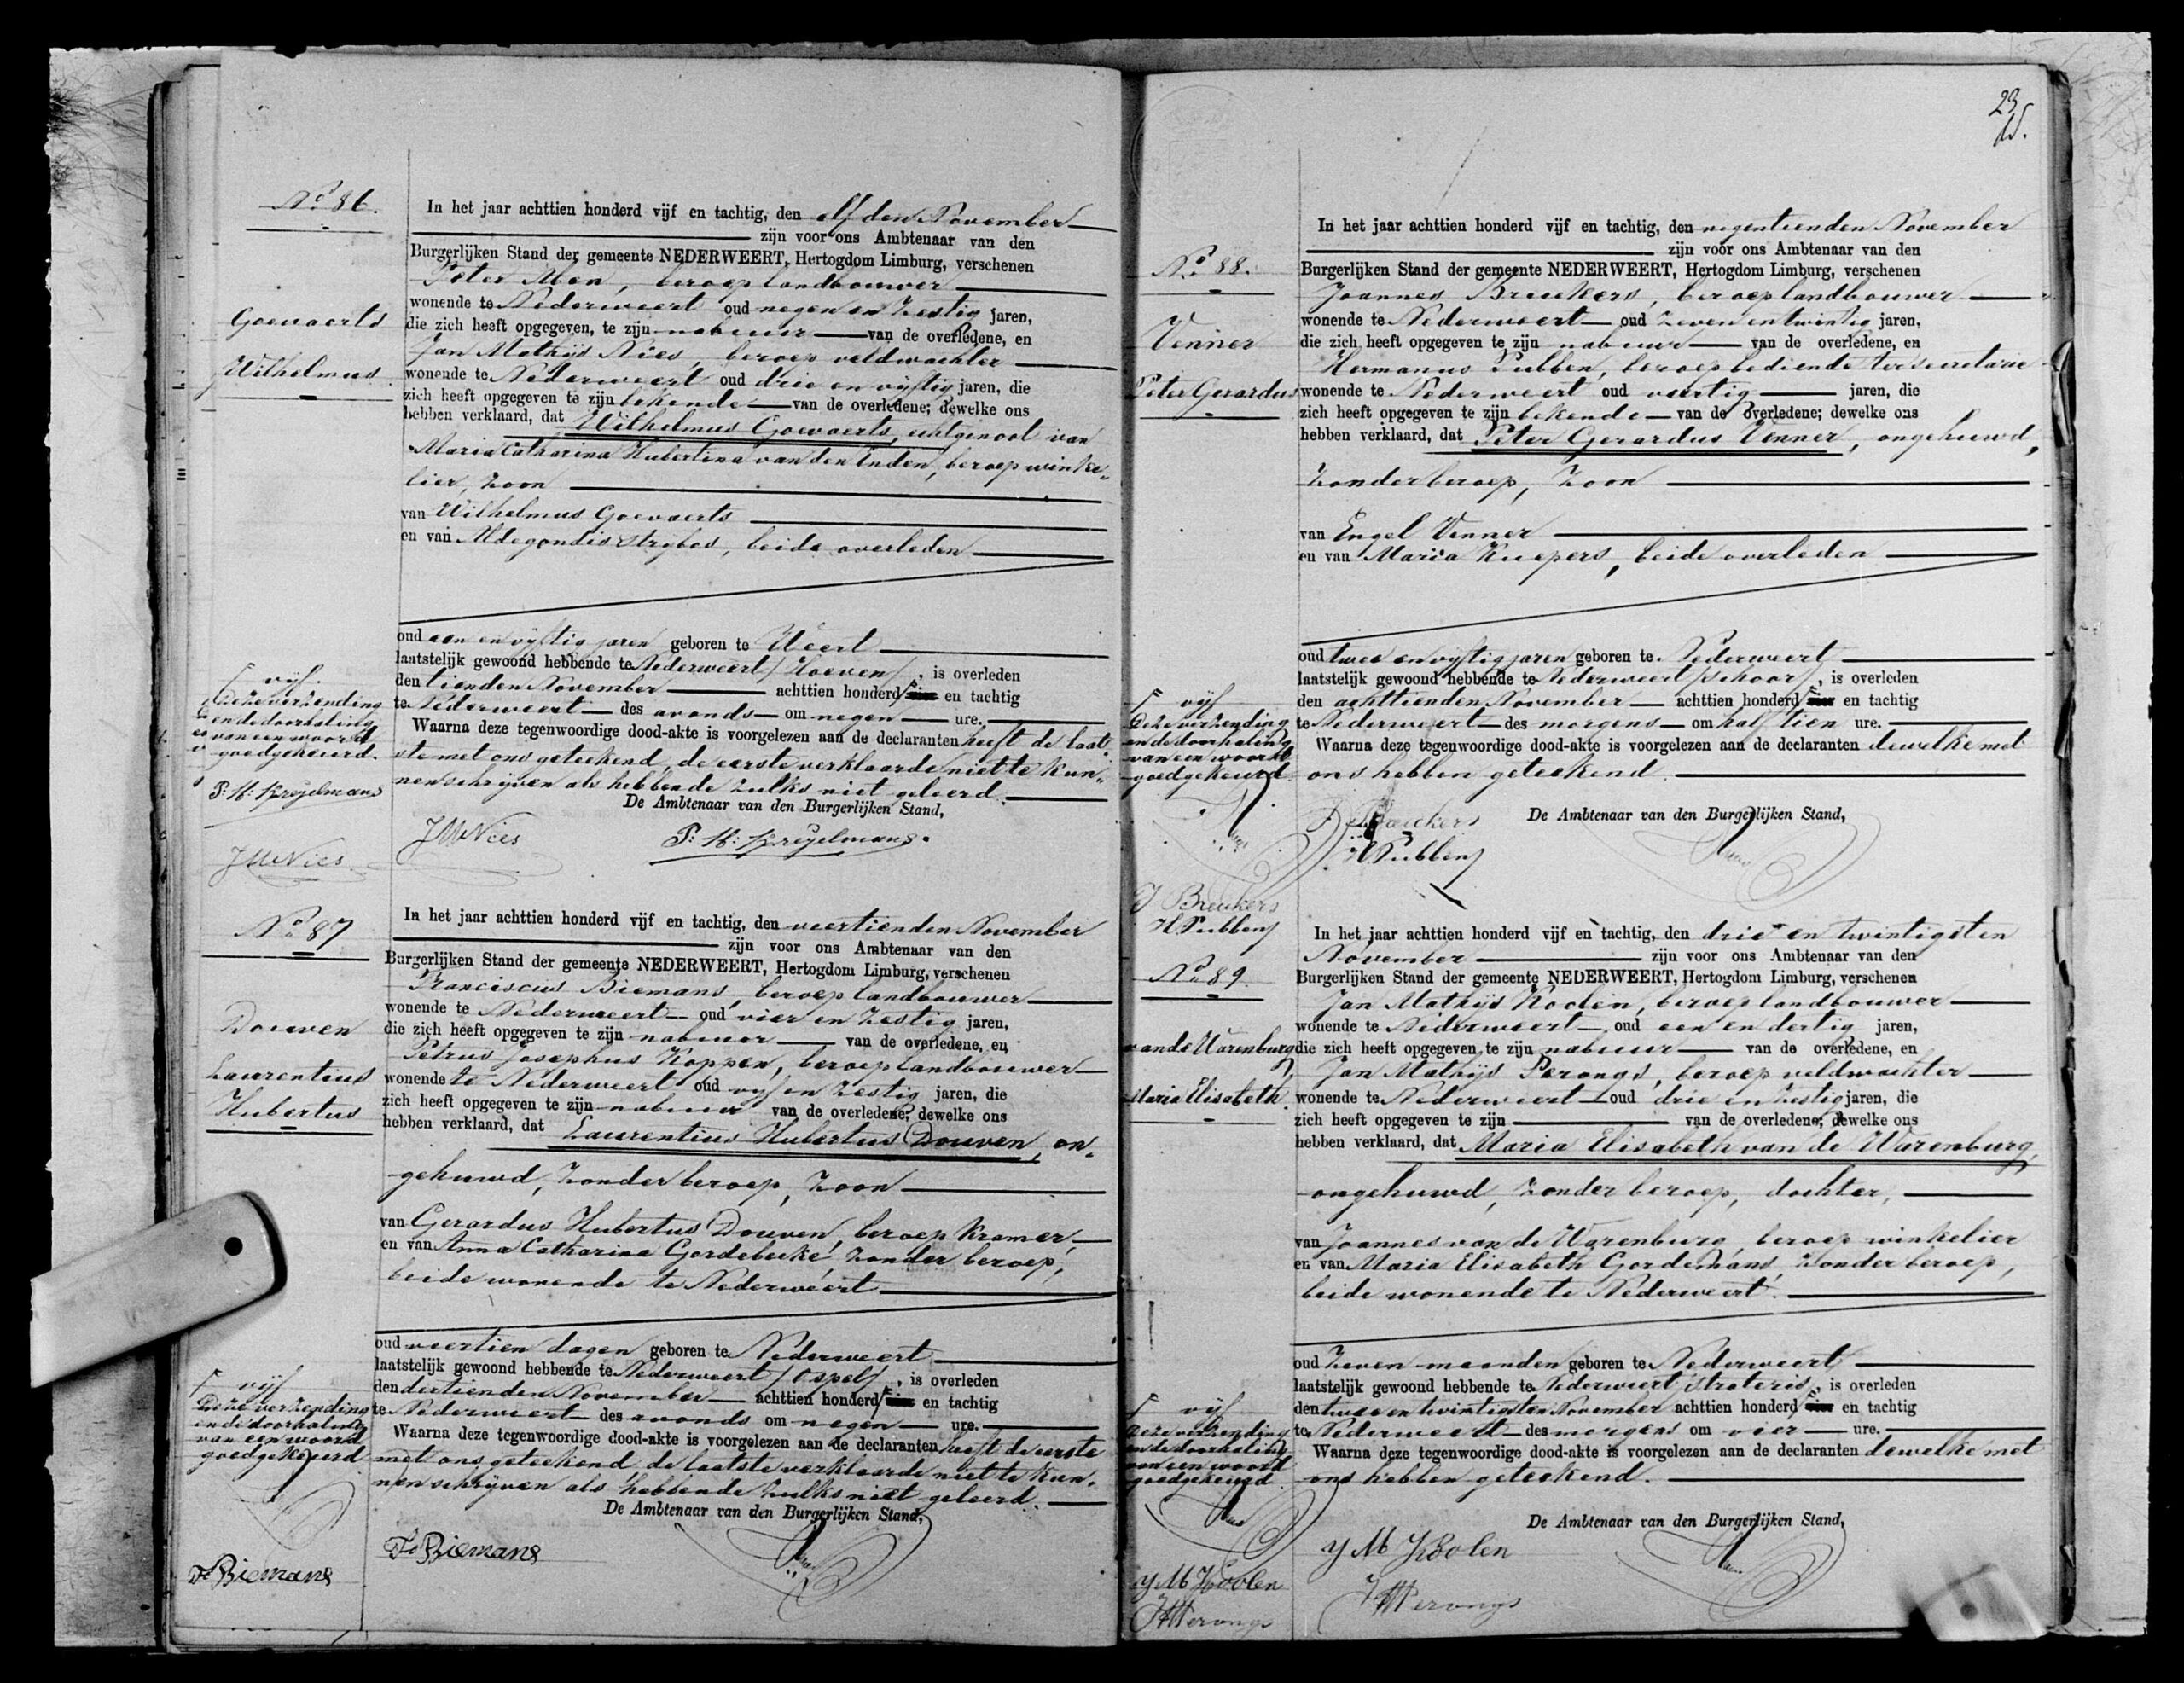 23
No 86.
Goevaerts
Wilhelmus
In het jaar achttien honderd vijf en tachtig, den elfden November
zijn voor ons Ambtenaar van den
Burgerlijken Stand der gemeente NEDERWEERT, Hertogdom Limburg, verschenen
Peter Aben, beroep landbouwer
wonende te Nederweert oud negen en zestig jaren,
die zich heeft opgegeven, te zijn nabuur van de overledene, en
Jan Mathijs Nies, beroep veldwachter
wonende te Nederweert oud drie en vyftig jaren, die
zich heeft opgegeven te zijn bekende van de overledene; dewelke ons
hebben verklaard, dat Wilhelmus Goevaerts, echtgenoot van
Maria Catharina Hubertina van den Enden, beroep winke-
lier, zoon
van Wilhelmus Goevaerts
en van Aldegondis Strybos, beide overleden
oud een en vyftig jaren geboren te Weert
laatstelijk gewoond hebbende te Nederweert / Hoeven /, is overleden
den tienden November achttien honderd vier en tachtig
te Nederweert des avonds om negen ure.
Waarna deze tegenwoordige dood-akte is voorgelezen aan de declaranten heeft de laat-
ste met ons geteekend, de eerste verklaarde niet te kun-
nen schrijven als hebbende zulks niet geleerd.
De Ambtenaar van den Burgerlijken Stand,
JMNies
P. H. Kreyelmans.
vyf.
Deze verzending
en de doorhaling
van een woord
goedgekeurd.
P. H. Kreyelmans
JMNies
No 87
Douven
Laurentius
Hubertus
In het jaar achttien honderd vijf en tachtig, den veertienden November
zijn voor ons Ambtenaar van den
Burgerlijken Stand der gemeente NEDERWEERT, Hertogdom Limburg, verschenen
Franciscus Biemans, beroep landbouwer
wonende te Nederweert oud vier en zestig jaren,
die zich heeft opgegeven te zijn nabuur van de overledene, en
Petrus Josephus Koppen, beroep landbouwer
wonende te Nederweert oud vyf en zestig jaren, die
zich heeft opgegeven te zijn nabuur van de overledene; dewelke ons
hebben verklaard, dat Laurentius Hubertus Douven, on-
gehuwd, zonder beroep, zoon
van Gerardus Hubertus Douven, beroep kramer,
en van Anna Catharina Gordebeke, zonder beroep,
beide wonende te Nederweert
oud veertien dagen geboren te Nederweert
laatstelijk gewoond hebbende te Nederweert / Ospel /, is overleden
den dertienden November achttien honderd vier en tachtig
te Nederweert des avonds om negen ure.
Waarna deze tegenwoordige dood-akte is voorgelezen aan de declaranten heeft de eerste
met ons geteekend de laatste verklaarde niet te kun-
nen schrijven als hebbende zulks niet geleerd.
De Ambtenaar van den Burgerlijken Stand,
Fr Biemans
vyf
Deze verzending
en de doorhaling
van een woord
goedgekeurd
Fr Biemans
No 88.
Venner
Peter Gerardus
In het jaar achttien honderd vijf en tachtig, den negentienden November
zijn voor ons Ambtenaar van den
Burgerlijken Stand der gemeente NEDERWEERT, Hertogdom Limburg, verschenen
Joannes Breukers, beroep landbouwer
wonende te Nederweert oud zeven en twintig jaren,
die zich heeft opgegeven te zijn nabuur van de overledene, en
Hermanus Pubben, beroep bediende ter secretarie
wonende te Nederweert oud veertig jaren, die
zich heeft opgegeven te zijn bekende van de overledene; dewelke ons
hebben verklaard, dat Peter Gerardus Venner, ongehuwd,
zonder beroep, zoon
van Engel Venner
en van Maria Kuepers, beide overleden
oud twee en vyftig jaren geboren te Nederweert
laatstelijk gewoond hebbende te Nederweert / Schoor /, is overleden
den achttienden November achttien honderd vier en tachtig
te Nederweert des morgens om half tien ure.
Waarna deze tegenwoordige dood-akte is voorgelezen aan de declaranten dewelke met
ons hebben geteekend.
De Ambtenaar van den Burgerlijken Stand,
J Breukers
H Pubben
vyf
Deze verzending
en de doorhaling
van een woord
goedgekeurd
J Breukers
H Pubben
No 89
van de Warenburg
Maria Elisabeth
In het jaar achttien honderd vijf en tachtig, den drie en twintigsten
November zijn voor ons Ambtenaar van den
Burgerlijken Stand der gemeente NEDERWEERT, Hertogdom Limburg, verschenen
Jan Mathijs Koolen, beroep landbouwer
wonende te Nederweert oud een en dertig jaren,
die zich heeft opgegeven te zijn nabuur van de overledene, en
Jan Mathijs Perongs, beroep veldwachter
wonende te Nederweert oud drie en zestig jaren, die
zich heeft opgegeven te zijn van de overledene; dewelke ons
hebben verklaard, dat Maria Elisabeth van de Warenburg,
ongehuwd, zonder beroep, dochter,
van Joannes van de Warenburg, beroep winkelier
en van Maria Elisabeth Gordemans, zonder beroep,
beide wonende te Nederweert.
oud zeven maanden geboren te Nederweert
laatstelijk gewoond hebbende te Nederweert / Strateris /, is overleden
den twee en twintigsten November achttien honderd vier en tachtig
te Nederweert des morgens om vier ure.
Waarna deze tegenwoordige dood-akte is voorgelezen aan de declaranten dewelke met
ons hebben geteekend.
De Ambtenaar van den Burgerlijken Stand,
J M Koolen
JMPerongs
vyf
Deze verzending
en de doorhaling
van een woord
goedgekeurd
J M Koolen
JMPerongs